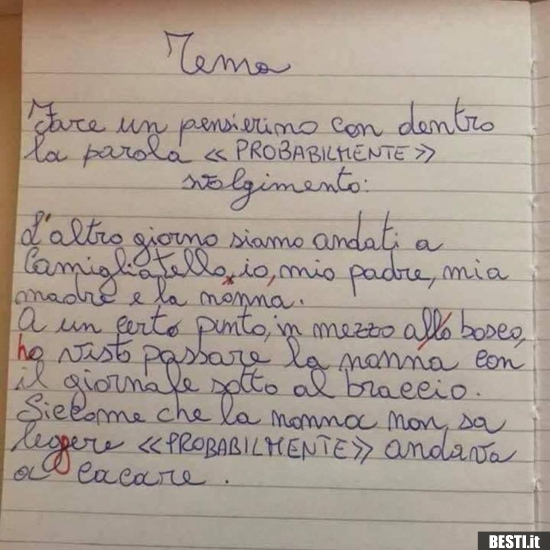 Tema
Fare un pensierino con dentro
la parola «PROBABILMENTE»
svolgimento:
L'altro giorno siamo andati a
Camigliatello, io, mio padre, mia
madre e la nonna.
A un certo punto, in mezzo allo bosco,
ho visto passare la nonna con
il giornale sotto al braccio.
Siccome che la nonna non sa
leggere «PROBABILMENTE» andava
a cacare.
BESTI.it